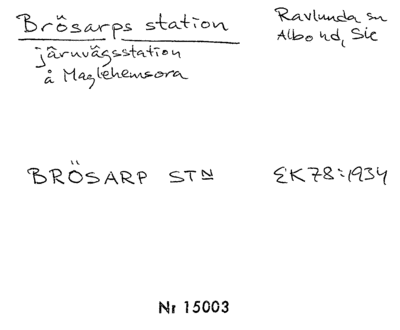 Brösarps station
Ravlunda sn
Albo hd, Sk
järnvägsstation
å Maglehemsora
BRÖSARP STN
EK78:1934
Nr 15003